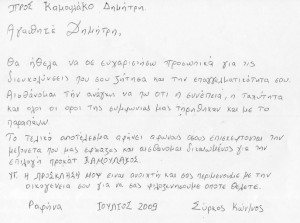 Προς Καμουλάκο Δημήτρη
Αγαπητέ Δημήτρη,
Θα ήθελα να σε ευχαριστήσω προσωπικά για τις
διευκολύνσεις που σου ζήτησα και την επαγγελματικότητα σου.
Αισθάνομαι την ανάγκη να πω ότι η συνέπεια, η ταχύτητα
και όλοι οι όροι της συμφωνίας μας τηρήθηκαν και με το
παραπάνω.
Το τελικό αποτέλεσμα αφήνει άφωνους όσους επισκέπτονται την
μεζονέτα που μας έφτιαξες και αισθάνομαι δικαιωμένος για την
επιλογή προκάτ ΚΑΜΟΥΛΑΚΟΣ.
Η ΠΡΟΣΚΛΗΣΗ ΜΟΥ είναι ανοιχτή και σας περιμένουμε με την
οικογένεια σου για να σας φιλοξενήσουμε όποτε θέμετε.
Ραφήνα ΙΟΥΛΙΟΣ 2009 Σύρκος Κων/νος